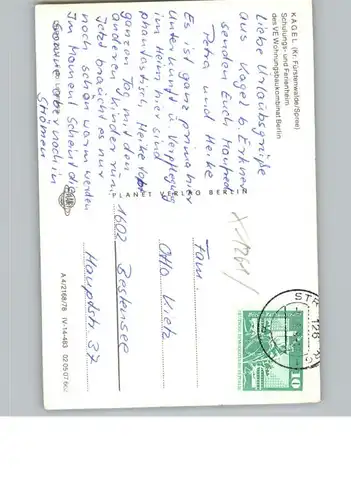 KAGEL (Kr. Fürstenwalde/Spree)
Schulungs- und Ferienheim
des VE Wohnungsbaukombinat Berlin
Liebe Urlaubsgrüße
aus Kagel b. Erkner
senden Euch Manfred
Petra und Heike
Es ist ganz prima hier
Unterkunft u. Verpflegung
im Heim hier sind
phantastisch, Heike tobt
ganzen Tag mit den
anderen Kindern rum,
Jetzt braucht es nur
noch schön warm werden
Im Moment scheint die
Sonne aber noch in
Strömen
PLANET VERLAG BERLIN
Fam.
Otto Vietz
1602 Bestensee
Hauptstr. 37
A 4/2168/78 IV-14-483 02 05 07 602
10